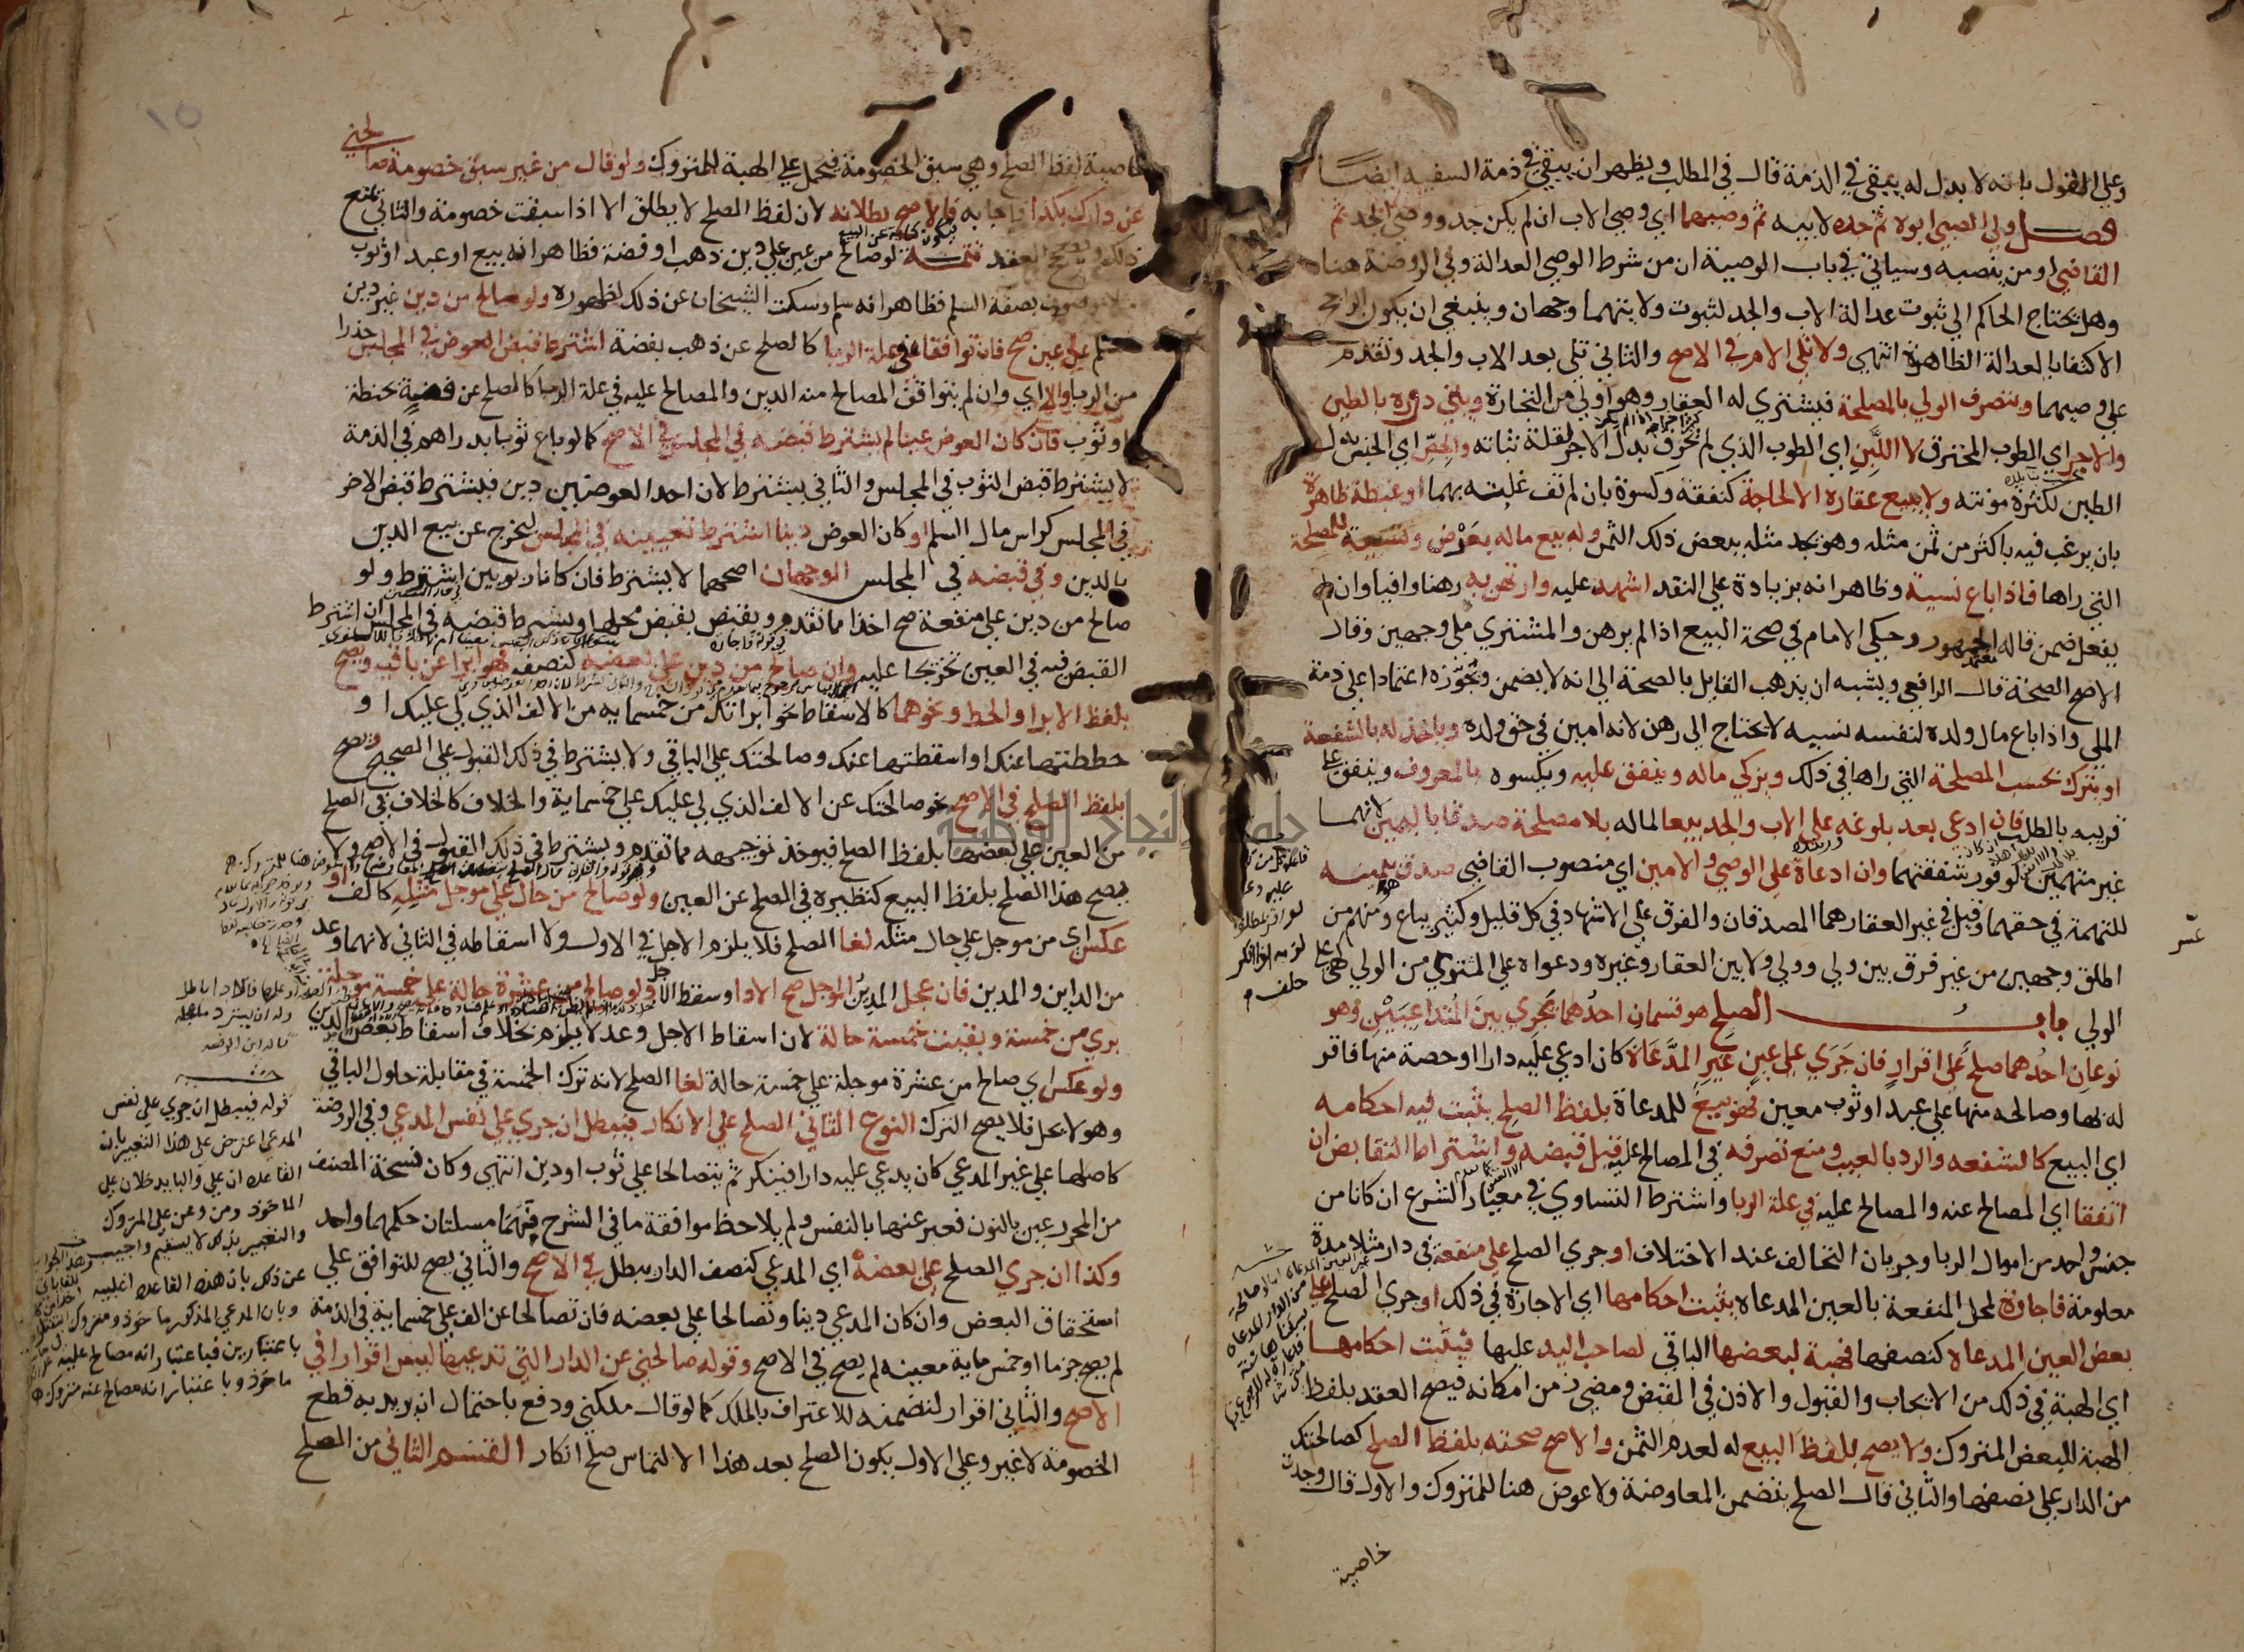 وعلى القول بانه لا بدل له يبقى في الذمة قال في المطلب ويظهر ان يبقى في ذمة السفيه ايضًا
فصل ولي الصبي ابوه ثم جده لابيه ثم وصيهما اي وصي الاب ان لم يكن جد ووصي الجد ثم
القاضي او من ينصبه وسياتي في باب الوصية ان من شرط الوصي العدالة وفي الروضة هنا
وهل يحتاج الحاكم الي ثبوت عدالة الاب والجد لثبوت ولايتهما وجهان وينبغي ان يكون الراجح
الاكتفا بالعدالة الظاهرة انتهي ولا تلي الام في الاصح والثاني تلي بعد الاب والجد وتقدم
علي وصيهما ويتصرف الولي بالمصلحة فيشتري له العقار وهو اولي من التجارة ويبني دوره بالطين
والاجر اي الطوب المحترق لا اللبن اي الطوب الذي لم يحرق بدل الاجر لقلة ثباته والجص اي الجبس بدل
الطين لكثرة مونته ولا يبيع عقاره الا لحاجة كنفقة وكسوة بان لم تف غلته بهما او غبطة ظاهرة
بان يرغب فيه باكثر من ثمن مثله وهو يجد مثله ببعض ذلك الثمن وله بيع ماله بعرض ونسية للمصلحة
التي راها فاذا باع نسية وظاهر انه بزيادة علي النقد اشهد عليه وارتهن به رهنا وافيا وان لم
يفعل ضمن قاله الجمهور وحكي الامام في صحة البيع اذا لم يرهن والمشتري ملي وجهين وقال
الاصح الصحة قال الرافعي ويشبه ان يذهب القايل بالصحة الي انه لا يضمن ويجوزه اعتمادا علي ذمة
الملي واذا باع مال ولده لنفسه نسيه لا يحتاج الي رهن لانه امين في حق ولده وياخذ له بالشفعة
او يترك بحسب المصلحة التي راها في ذلك ويزكي ماله وينفق عليه ويكسوه بالمعروف وينفق علي
قريبه بالطلب فان ادعي بعد بلوغه علي الاب والجد بيعا لماله بلا مصلحة صدقا باليمين لانهما
غير متهمين لوفور شفقتهما وان ادعاه علي الوصي والامين اي منصوب القاضي صدق بيمينه
للتهمة في حقهما وقيل في غير العقار هما المصدقان والفرق علي الاشهاد في كل قليل وكثير يباع ومنهم من
اطلق وجهين من غير فرق بين ولي وولي ولا بين العقار وغيره ودعواه علي المشتري من الولي كهي علي
الولي باب الصلح هو قسمان احدهما يجري بين المتداعيين وهو
نوعان احدهما صلح علي اقرار فان جري علي عين غير المدعاة كان ادعي عليه دارا او حصة منها فاقر
له بها وصالحه منها علي عبد او ثوب معين فهو بيع للمدعاة بلفظ الصلح يثبت فيه احكامه
اي البيع كالشفعه والرد بالعيب ومنع تصرفه في المصالح عليه قبل قبضه واشتراط التقابض ان
اتفقا اي المصالح عنه والمصالح عليه في علة الربا واشترط التساوي في معيار الشرع ان كانا من
جنس واحد من اموال الربا وجريان التحالف عند الاختلاف او جري الصلح علي منفعة في دار مثلا مدة
معلومة فاجازة لمحل المنفعة بالعين المدعاه يثبت احكامها اي الاجارة في ذلك او جري الصلح علي
بعض العين المدعاه كنصفها فهبة لبعضها الباقي لصاحب اليد عليها فيثبت احكامها
اي الهبة في ذلك من الايجاب والقبول والاذن في القبض ومضي زمن امكانه فيصح العقد بلفظ
الهبة للبعض المتروك ولا يصح بلفظ البيع له لعدم الثمن والاصح صحته بلفظ الصلح كصالحتك
من الدار علي نصفها والثاني قال الصلح يتضمن المعاوضة ولا عوض هنا للمتروك والاول قال وجدت
خاصية
خاصية لفظ الصلح وهي سبق الخصومة فيحمل علي الهبة للمتروك ولو قال من غير سبق خصومة صالحني
عن دارك بكذا فاجابه فالاصح بطلانه لان لفظ الصلح لا يطلق الا اذا سبقت خصومة والثاني يمنع
ذلك ويصح العقد تتمة لو صالح من عين علي دين ذهب او فضة فظاهر انه بيع او عبد او ثوب
موصوف بصفة السلم فظاهر انه سلم وسكت الشيخان عن ذلك لظهوره ولو صالح من دين غير دين
سلم علي عين صح فان توافقا في علة الربا كالصلح عن ذهب بفضة اشترط قبض العوض في المجلس حذرا
من الربا والا اي وان لم يتوافق المصالح منه الدين والمصالح عليه في علة الربا كالصلح عن فضة بحنطة
او ثوب فان كان العوض عينا لم يشترط قبضه في المجلس في الاصح كما لو باع ثوبا بدراهم في الذمة
لا يشترط قبض الثوب في المجلس والثاني يشترط لان احد العوضين دين فيشترط قبض الاخر
في المجلس كراس مال السلم او كان العوض دينا اشترط تعيينه في المجلس ليخرج عن بيع الدين
بالدين وفي قبضه في المجلس الوجهان اصحهما لا يشترط فان كانا ربويين اشترط ولو
صالح من دين علي منفعة صح اخذا مما تقدم ويقبض بقبض محلها ويشترط قبضه في المجلس ان اشترط
القبض فيه في العين تخريجا عليه وان صالح من دين علي بعضه كنصفه فهو ابرا عن باقيه ويصح
بلفظ الابرا والحط ونحوهما كالاسقاط نحو ابراتك من خمسمايه من الالف الذي لي عليك او
حططتها عنك او اسقطتها عنك وصالحتك علي الباقي ولا يشترط في ذلك القبول علي الصحيح ويصح
بلفظ الصلح في الاصح نحو صالحتك عن الالف الذي لي عليك علي خمسماية والخلاف كالخلاف في الصلح
من العين علي بعضها بلفظ الصلح فيوخذ توجيهه مما تقدم ويشترط في ذلك القبول في الاصح ولا
يصح هذا الصلح بلفظ البيع كنظيره في الصلح عن العين ولو صالح من حال علي موجل مثله كالف او
عكس اي من موجل علي حال مثله لغا الصلح فلا يلزم الاجل في الاول ولا اسقاطه في الثاني لانهما وعد
من الداين والمدين فان عجل المدين الموجل صح الادا وسقط الاجل ولو صالح من عشرة حالة علي خمسة موجلة
بري من خمسة وبقيت خمسة حالة لان اسقاط الاجل وعد لا يلزم بخلاف اسقاط بعض الدين
ولو عكس اي صالح من عشرة موجلة علي خمسة حالة لغا الصلح لانه ترك الخمسة في مقابلة حلول الباقي
وهو لا يحل فلا يصح الترك النوع الثاني الصلح علي الانكار فيبطل ان جري علي نفس المدعي وفي الروضة
كاصلها علي غير المدعي كان يدعي عليه دارا فينكر ثم يتصالحا علي ثوب او دين انتهي وكان نسخة المصنف
من المحرر عين بالنون فعبر عنها بالنفس ولم يلاحظ موافقة ما في الشرح فهما مسلتان حكمهما واحد
وكذا ان جري الصلح علي بعضه اي المدعي كنصف الدار يبطل في الاصح والثاني يصح للتوافق علي
استحقاق البعض وان كان المدعي دينا وتصالحا علي بعضه فان تصالحا عن الف علي خمسماية في الذمة
لم يصح جزما او خمسماية معينه لم يصح في الاصح وقوله صالحني عن الدار التي تدعيها ليس اقرارا في
الاصح والثاني اقرار لتضمنه الاعتراف بالملك كما لو قال ملكني ودفع باحتمال ان يريد به قطع
الخصومة لا غير وعلي الاول يكون الصلح بعد هذا الالتماس صلح انكار القسم الثاني من الصلح
قوله فيبطل ان جري علي نفس
المدعي اعترض علي هذا التعبير بان
القاعده ان علي والبا يدخلان علي
الماخوذ ومن وعن علي المتروك
والتعبير بذلك لا يستقيم واجيب
عن ذلك بان هذه القاعده اغلبيه
وبان المدعي المذكور ماخوذ ومتروك
باعتبارين فباعتبار انه مصالح عليه
ماخوذ وباعتبار انه مصالح عنه متروك